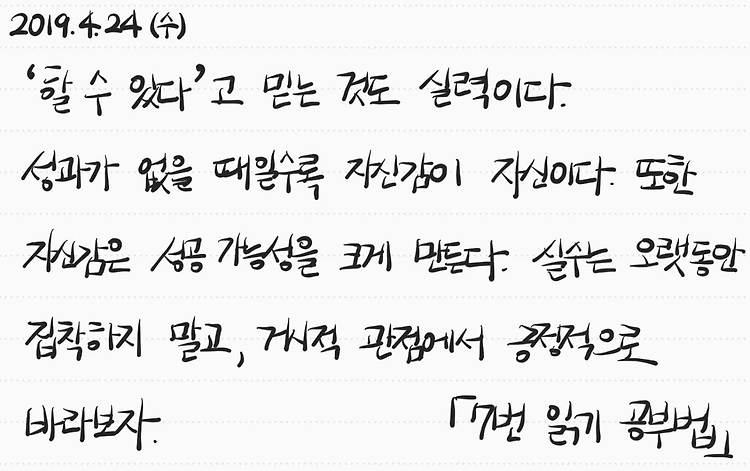 2019.4.24 (수)
‘할 수 있다’고 믿는 것도 실력이다.
성과가 없을 때일수록 자신감이 자신이다. 또한
자신감은 성공 가능성을 크게 만든다. 실수는 오랫동안
집착하지 말고, 거시적 관점에서 긍정적으로
바라보자. 「7번 읽기 공부법」